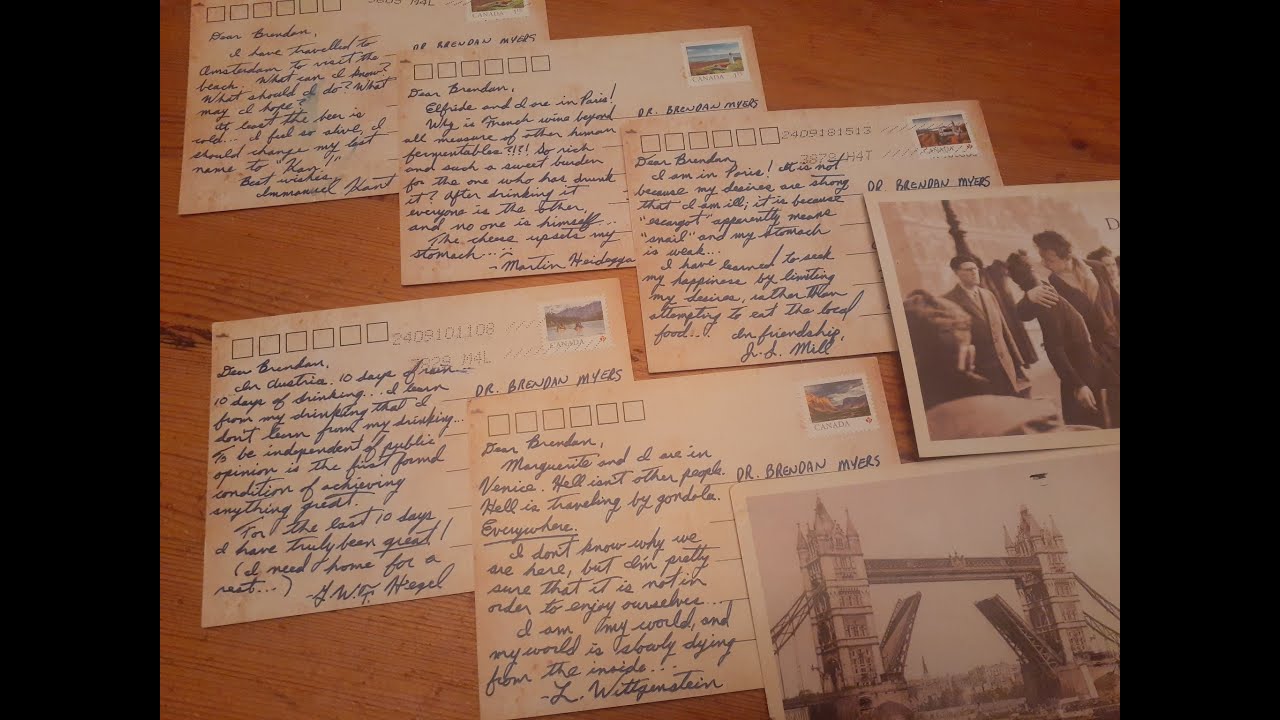 3809 M4L
CANADA
Dear Brendan,
I have travelled to
Amsterdam to visit the
beach. What can I know?
What should I do? What
may I hope?
At least the beer is
cold... I feel so alive, I
should change my last
name to "Kan!"
Best wishes,
Immanuel Kant
DR BRENDAN MYERS
CANADA
Dear Brendan,
Elfride and I are in Paris!
Why is French wine beyond
all measure of other human
fermentables?!?! So rich
and such a sweet burden
for the one who has drunk
it? After drinking it
everyone is the other,
and no one is himself...
The cheese upsets my
stomach...
-Martin Heidegga
DR. BRENDAN MYERS
2409181513
3879 H4T
CANADA
Dear Brendan,
I am in Paris! It is not
because my desires are strong
that I am ill; it is because
"escargot" apparently means
"snail" and my stomach
is weak...
I have learned to seek
my happiness by limiting
my desires, rather than
attempting to eat the local
food...
In friendship,
J.S. Mill
DR BRENDAN MYERS
D
2409101108
3829 M4L
CANADA
Dear Brendan,
In Austria. 10 days of rain...
10 days of drinking... I learn
from my drinking that I
don't learn from my drinking...
To be independent of public
opinion is the first formal
condition of achieving
anything great.
For the last 10 days
I have truly been great!
(I need to home for a
rest...)
-G.W.F. Hegel
DR. BRENDAN MYERS
CANADA
Dear Brendan,
Marguerite and I are in
Venice. Hell isn't other people.
Hell is traveling by gondola.
Everywhere.
I don't know why we
are here, but I'm pretty
sure that it is not in
order to enjoy ourselves...
I am my world, and
my world is slowly dying
from the inside...
-L. Wittgenstein
DR. BRENDAN MYERS